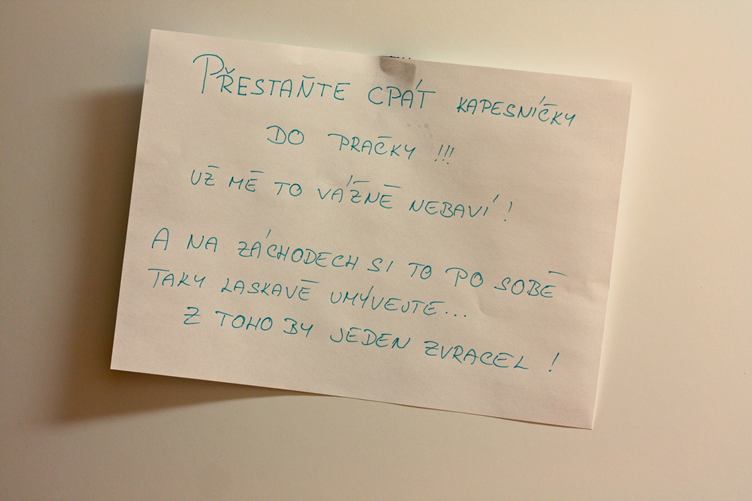 PŘESTAŇTE CPÁT KAPESNÍČKY
DO PRAČKY !!!
UŽ MĚ TO VÁŽNĚ NEBAVÍ!
A NA ZÁCHODECH SI TO PO SOBĚ
TAKY LASKAVĚ UMÝVEJTE...
Z TOHO BY JEDEN ZVRACEL !